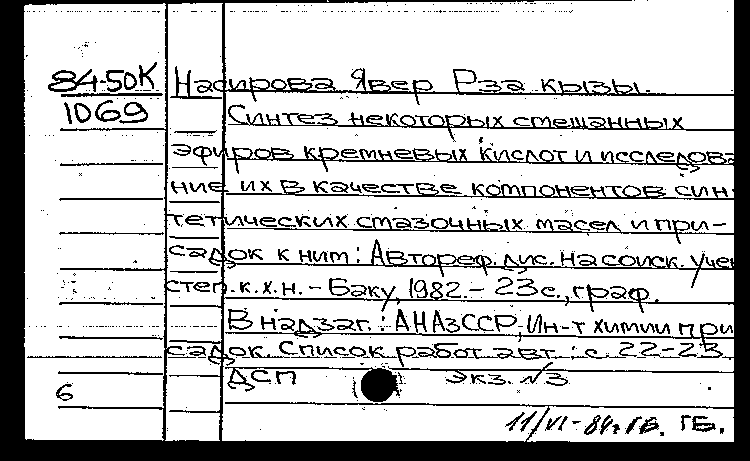 84-50К Насирова Явер Рза кызы.
1069 Синтез некоторых смешанных
эфиров кремневых кислот и исследова
ние их в качестве компонентов син
тетических смазочных масел и при-
садок к ним: Автореф. дис. на соиск. учен
степ. к.х.н. - Баку, 1982. - 23с., граф.
В надзаг.: АН АзССР, Ин-т химии при
садок. Список работ авт.: с. 22-23.
ДСП экз. №3
6
11/VI-84г ГБ. ГБ.